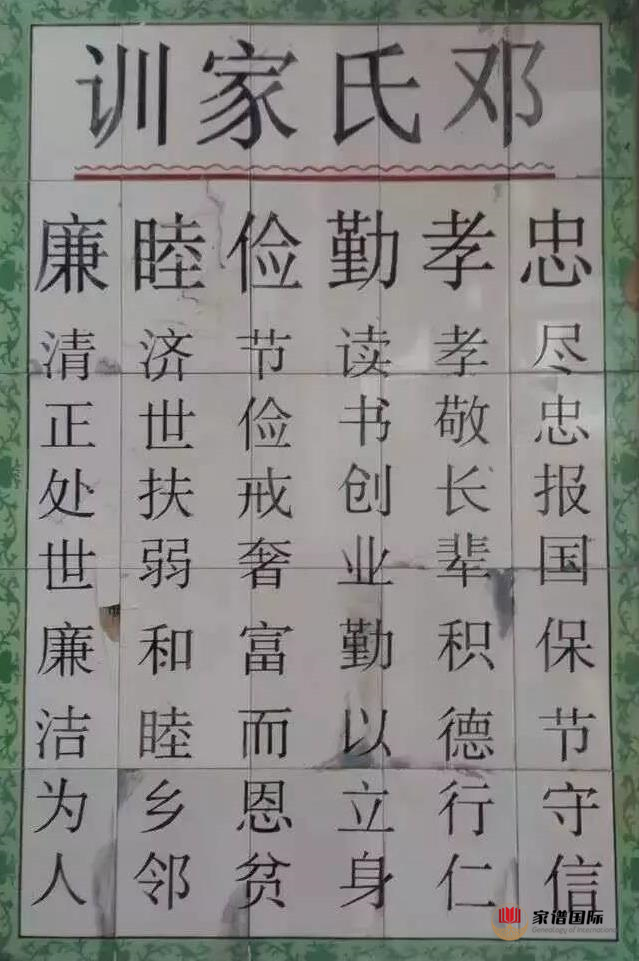 邓氏家训
忠 尽忠报国 保节守信
孝 孝敬长辈 积德行仁
勤 读书创业 勤以立身
俭 节俭戒奢 富而恩贫
睦 济世扶弱 和睦乡邻
廉 清正处世 廉洁为人
家谱国际
Genealogy of International